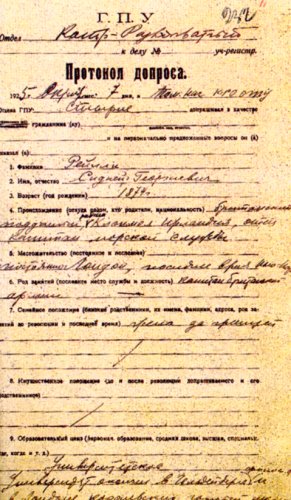 Г.П.У
Отдел Контр-Разведывательный
к делу № уч-регистр.
Протокол допроса.
1925 г. Окт. 7 дня, я
Отдела ГПУ допрашивал в качестве
гражданина (ку)
и на первоначально предложенные вопросы он (á)
показал (а):
1. Фамилия Рейлли
2. Имя, отчество Сидней Георгиевич
3. Возраст (год рождения) 1874 г.
4. Происхождение (откуда родом, кто родители, национальность) Британский
подданный Клонмэл Ирландия, отец
капитан морской службы
5. Местожительство (постоянное и последнее)
постоянное Лондон, последнее время Нью-Йорк
6. Род занятий (последнее место службы и должность) капитан британской
армии
7. Семейное положение (близкие родственники, их имена, фамилии, адреса, род за-
нятий до революции и последнее время) жена за границей
8. Имущественное положение (до и после революции допрашиваемого и его
родственников)
9. Образовательный ценз (первонач. образование, средняя школа, высшая, специальн.
где, когда и т. д.)
Университетское
Университет окончил в Гейдельберге
в Лондоне королевский